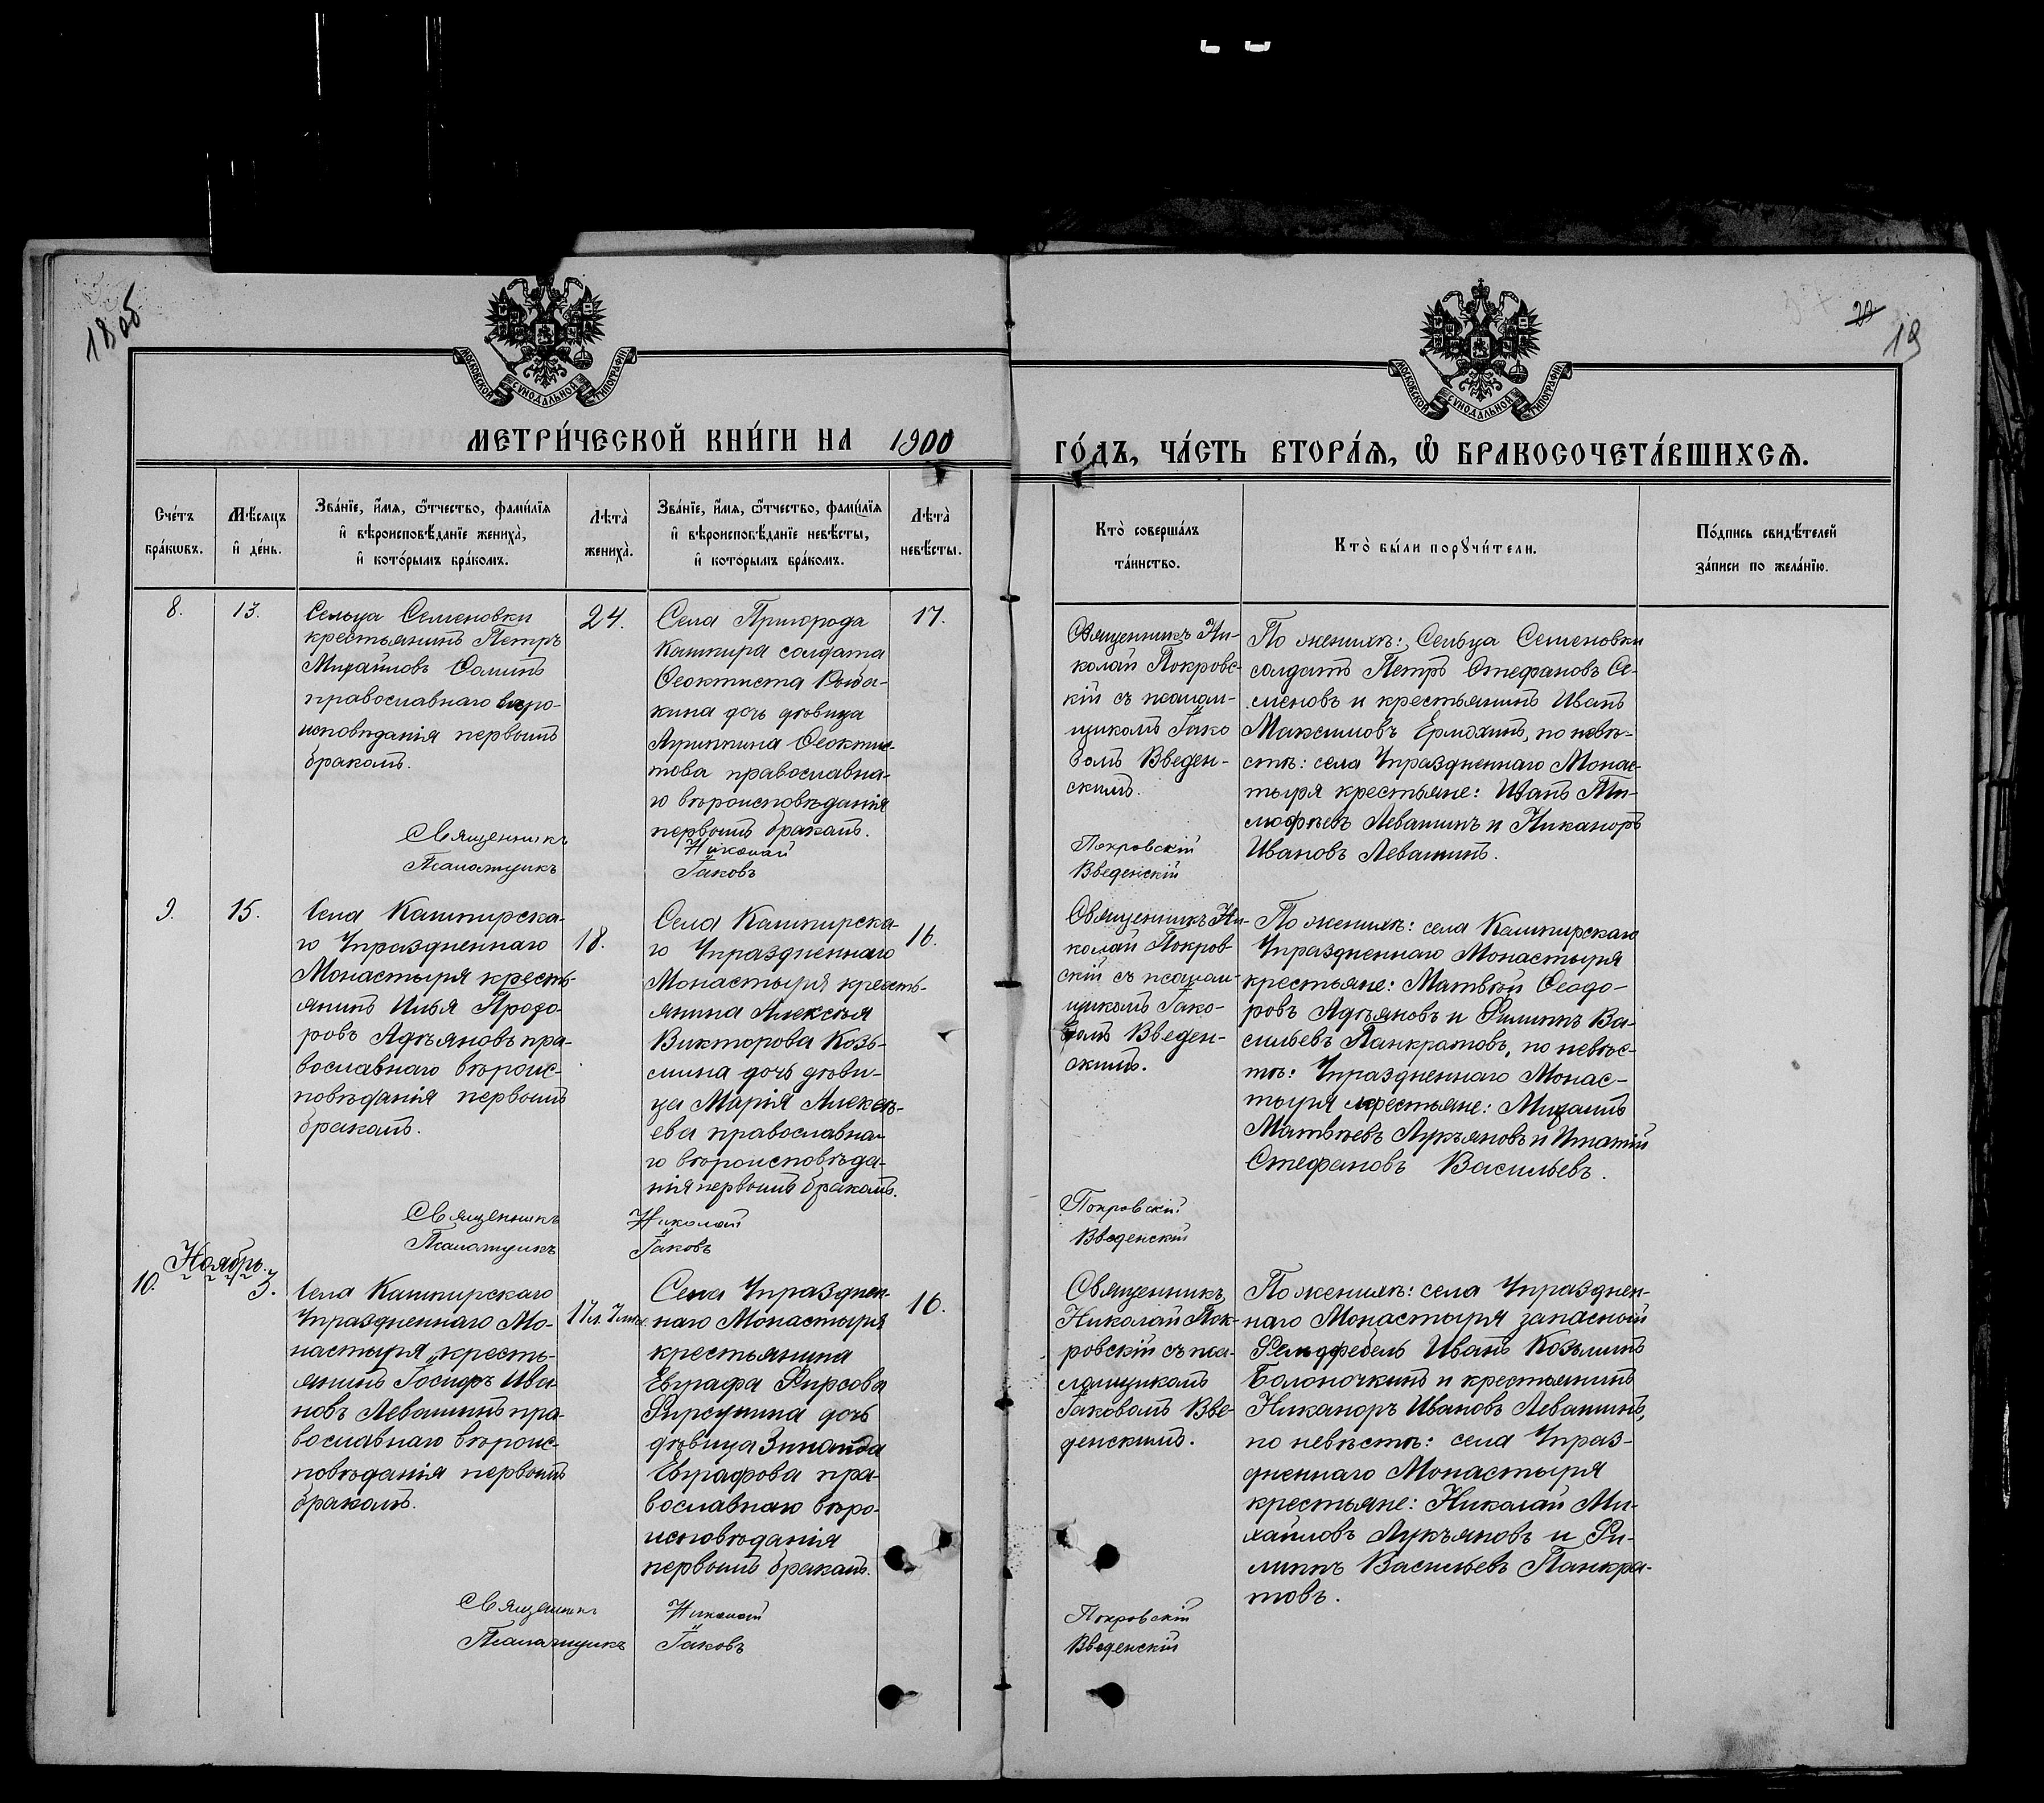 18 об
20
19
МОСКОВСКОЙ СУНОДАЛЬНОЙ ТИПОГРАФІИ
МОСКОВСКОЙ СУНОДАЛЬНОЙ ТИПОГРАФІИ
МЕТРИ́ЧЕСКОЙ КНИ́ГИ НА 1900
ГО́ДЪ, ЧА́СТЬ ВТОРА́Ѧ, Ѽ БРАКОСОЧЕТА́ВШИХСѦ.
Сче́тъ
бра́кѡвъ.
Мѣ́сяцъ
и҆ де́нь.
Зва́нїе, и҆́мѧ, ѻ҆́тчество, фами́лїѧ
и҆ вѣроисповѣ́данїе жениха̀,
и҆ кото́рымъ бра́комъ.
Лѣта̀
жениха̀.
Зва́нїе, и҆́мѧ, ѻ҆́тчество, фами́лїѧ
и҆ вѣроисповѣ́данїе невѣ́сты,
и҆ кото́рымъ бра́комъ.
Лѣта̀
невѣ́сты.
Кто̀ соверша́лъ
та́инство.
Кто̀ бы́ли порꙋчи́тели.
По́дпись свидѣ́телей
за́писи по жела́нїю.
8.
13.
Сельца Семеновки
крестьянинъ Петръ
Михайловъ Фоминъ
православнаго вѣро-
исповѣданія первымъ
бракомъ.
24.
Села Пригорода
Кашпира солдата
Ѳеоктиста Рыба-
кина дочь дѣвица
Агрипина Ѳеоктис-
това православна-
го вѣроисповѣданія
первымъ бракомъ.
17.
Священникъ Ни-
колай Покровс-
кій съ псалом-
щикомъ Іако
вомъ Введен-
скимъ.
По женихѣ: Сельца Семеновки
солдатъ Петръ Стефановъ Се-
меновъ и крестьянинъ Иванъ
Максимовъ Ермохинъ, по невѣ-
стѣ: села Упраздненнаго Монас-
тыря крестьяне: Иванъ Ти-
мофѣевъ Левашинъ и Никаноръ
Ивановъ Левашинъ.
Священникъ Николай Покровскій
Псаломщикъ Іаковъ Введенскій
9.
15.
Села Кашпирска-
го Упраздненнаго
Монастыря кресть-
янинъ Илья Прохо-
ровъ Адѣяновъ пра-
вославнаго вѣроис-
повѣданія первымъ
бракомъ.
18.
Села Кашпирска-
го Упраздненнаго
Монастыря кресть-
янина Алексѣя
Викторова Козь-
мина дочь дѣви-
ца Марія Алексѣ-
ева православна-
го вѣроисповѣда-
нія первымъ бракомъ.
16.
Священникъ Ни-
колай Покров-
скій съ псалом-
щикомъ Іако-
вомъ Введен-
скимъ.
По женихѣ: села Кашпирскаго
Упраздненнаго Монастыря
крестьяне: Матвѣй Ѳеодо-
ровъ Адѣяновъ и Филиппъ Ва-
сильевъ Панкратовъ, по невѣс-
тѣ: Упраздненнаго Монас-
тыря крестьяне: Михаилъ
Матвѣевъ Лукъяновъ и Игнатій
Стефановъ Васильевъ.
Священникъ Николай Покровскій
Псаломщикъ Іаковъ Введенскій
Ноябрь.
10.
3.
Села Кашпирскаго
Упраздненнаго Мо-
настыря кресть-
янинъ Іосифъ Ива-
новъ Левашинъ пра-
вославнаго вѣроис-
повѣданія первымъ
бракомъ.
17 л. 7 мѣс.
Села Упразднен-
наго Монастыря
крестьянина
Евграфа Фирсова
Фирсунина дочь
дѣвица Зинаида
Евграфова пра-
вославнаго вѣро-
исповѣданія
первымъ бракомъ.
16.
Священникъ
Николай Пок-
ровскій съ пса-
ломщикомъ
Іаковомъ Вве-
денскимъ.
По женихѣ: села Упразднен-
наго Монастыря запасной
Фельдфебель Иванъ Козьминъ
Болоночкинъ и крестьянинъ
Никаноръ Ивановъ Левашинъ,
по невѣстѣ: села Упраз-
дненнаго Монастыря
крестьяне: Николай Ми-
хайловъ Лукъяновъ и Фи-
липпъ Васильевъ Панкра-
товъ.
Священникъ Николай Покровскій
Псаломщикъ Іаковъ Введенскій